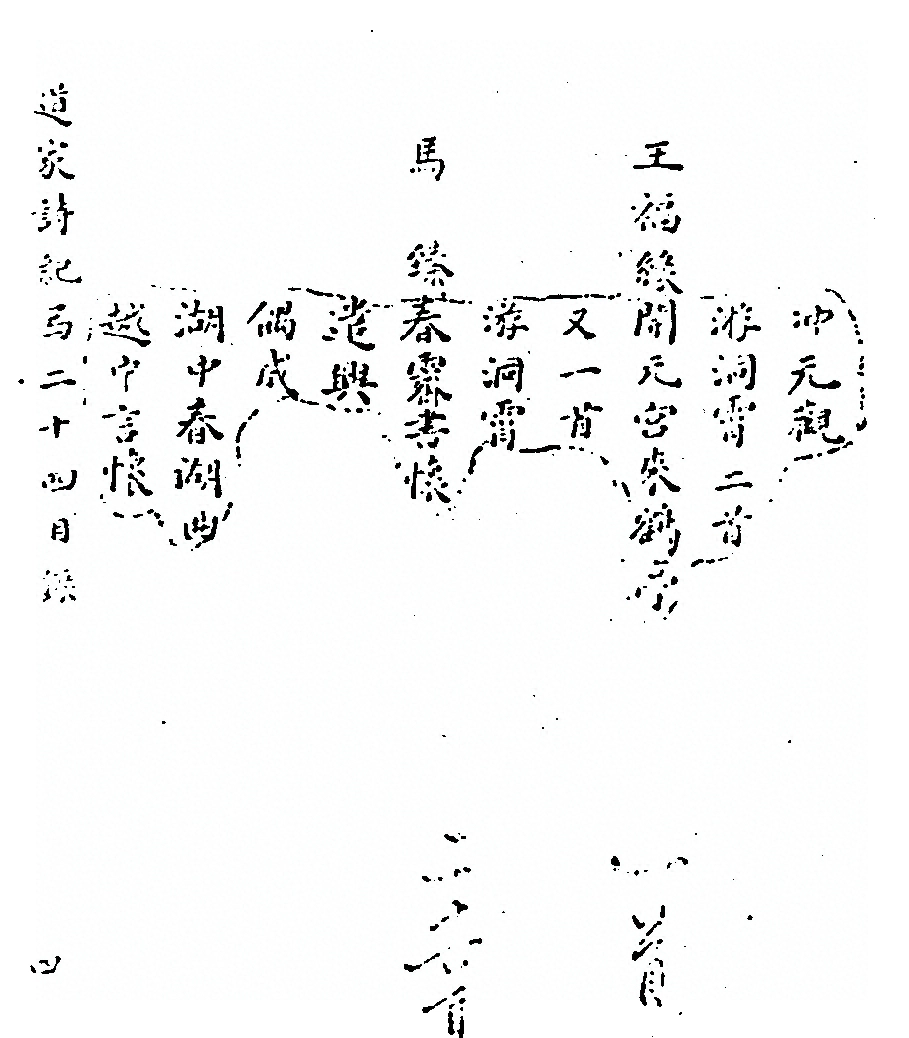 冲元觀
游洞霄二首
王福緣開元宮來鶴亭 一首
又一首
游洞霄
馬 臻春霽書懷 二十六首
遣興
偶成
湖中春湖曲
越中言懷
道家詩紀弓二十四目錄 四